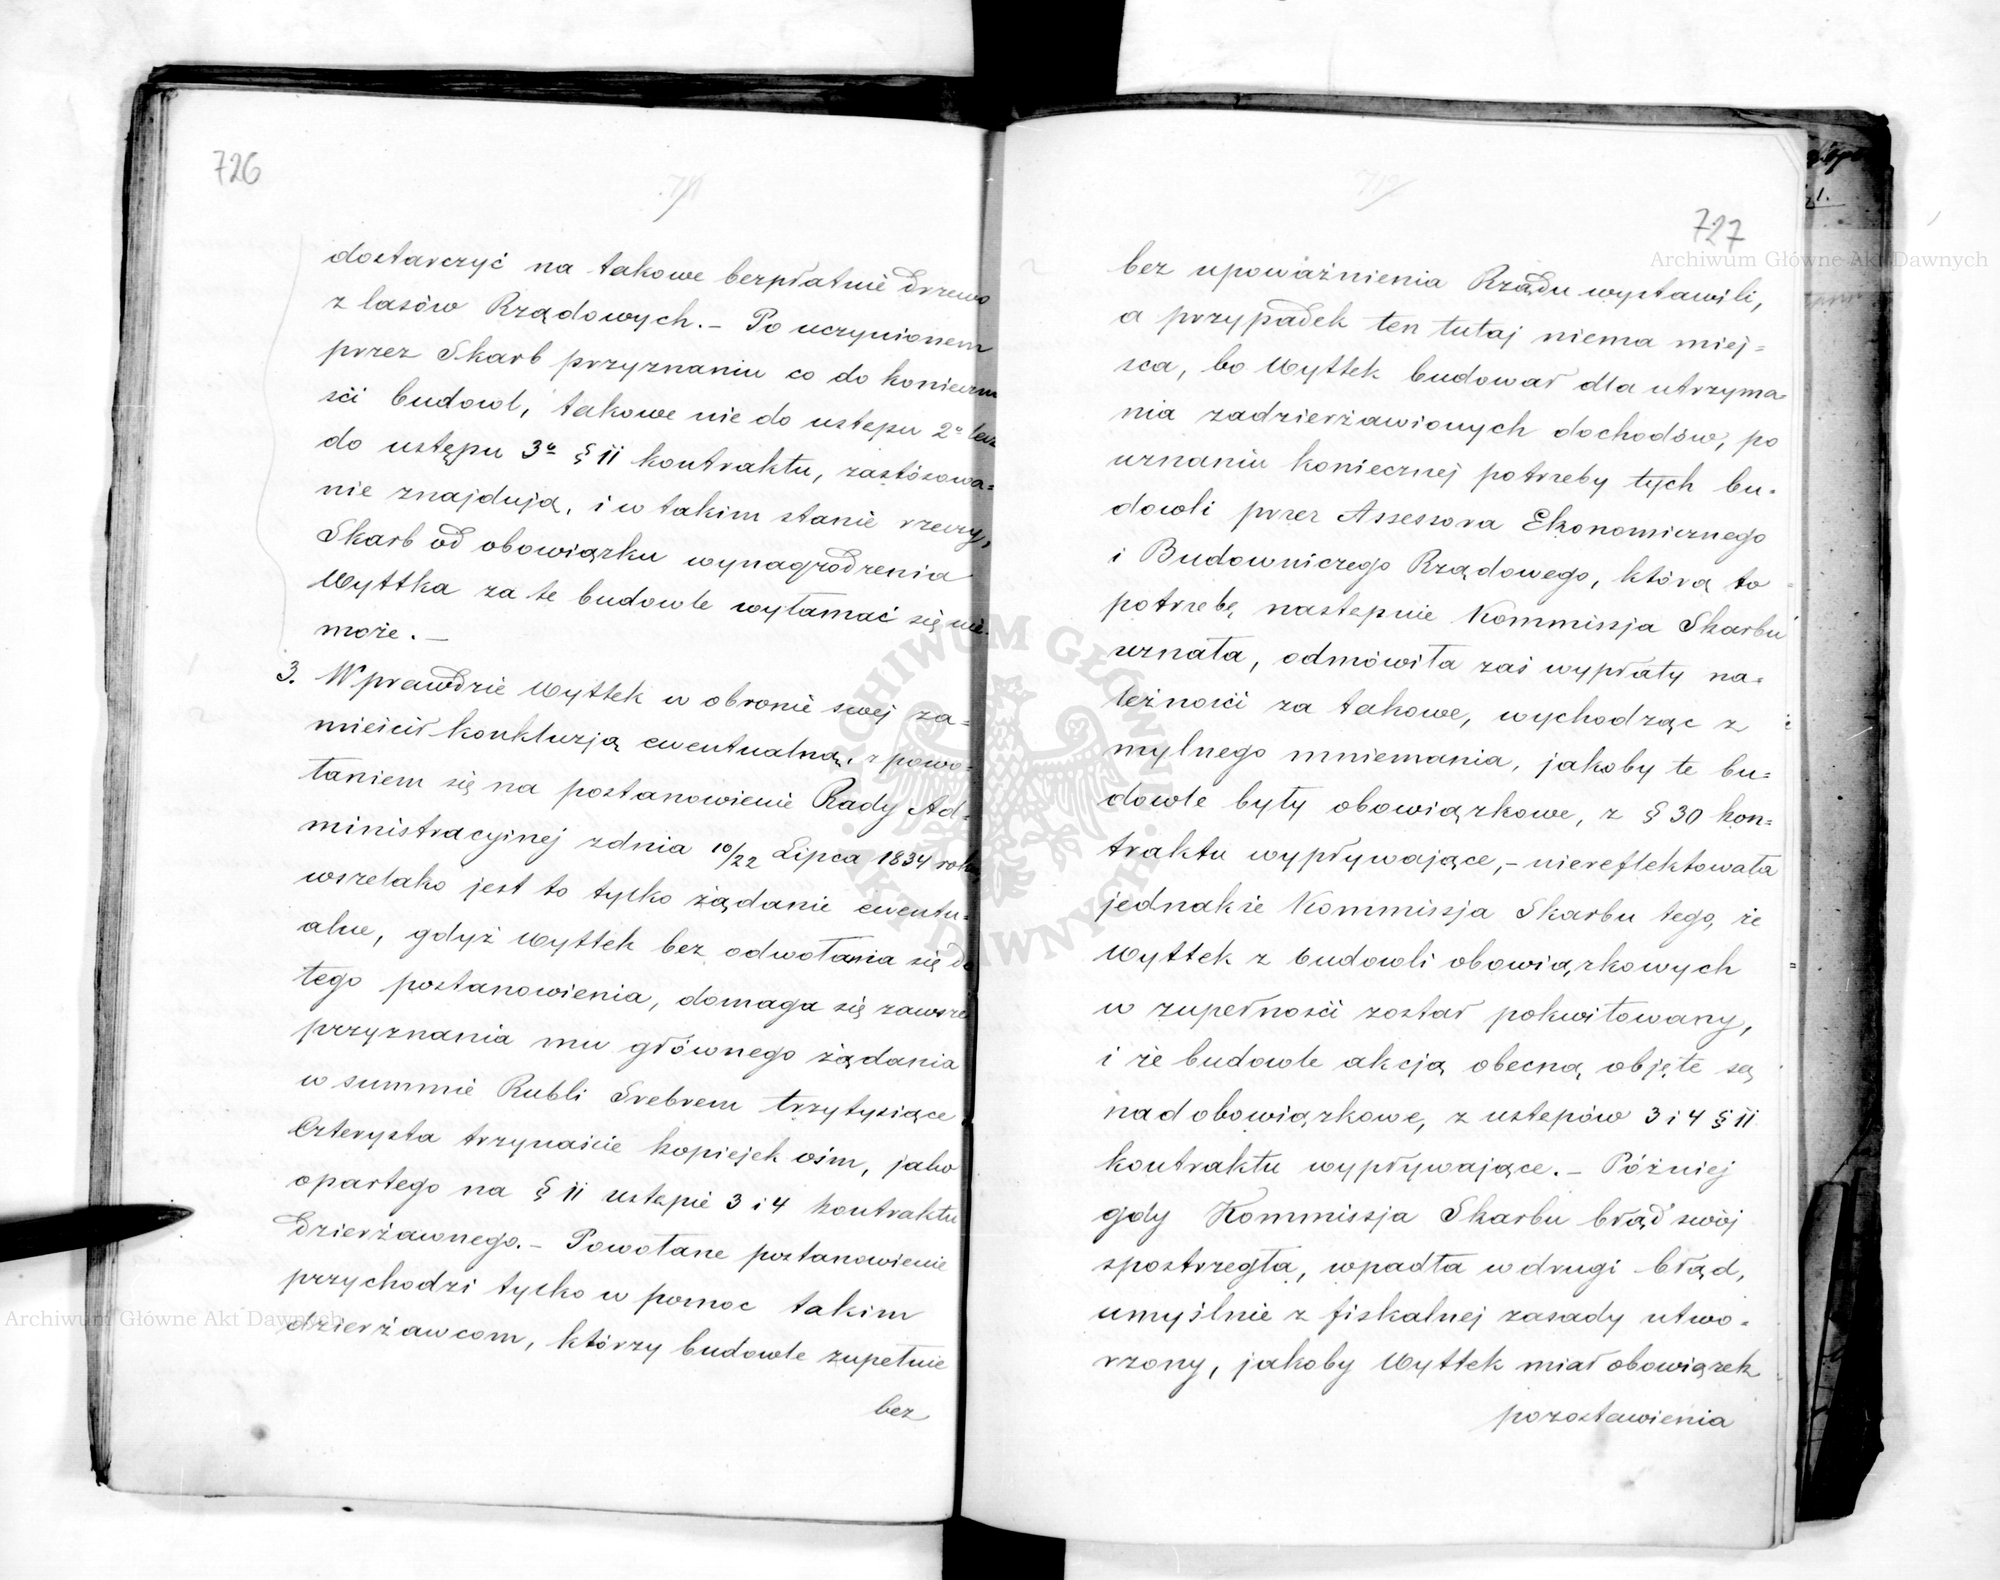 726
dostarczyć na takowe bezpłatnie drzewo
z lasów Rządowych. – Po uczynionem
przez Skarb przyznaniu co do konieczno
ści budowl, takowe nie do ustepu 2º lecz
do ustępu 3º § 11 kontraktu, zastósowa=
nie znajdują, i w takim stanie rzeczy,
Skarb od obowiązku wynagrodzenia
Wyttka za te budowle wyłamać się nie
może. –
3. Wprawdzie Wyttek w obronie swej za=
mieścił konkluzją ewentualną, z powo=
łaniem się na postanowienie Rady Ad=
ministracyjnej zdnia 10/22 Lipca 1834 roku
wszelako jest to tylko żądanie ewentu=
alne, gdyż Wyttek bez odwołania się do
tego postanowienia, domaga się zawsze
przyznania mu głównego żądania
w summie Rubli Srebrem trzytysiące
Czterysta trzynaście kopiejek ośm, jako
opartego na § 11 ustepie 3 i 4 kontraktu
dzierżawnego. – Powołane postanowienie
przychodzi tylko w pomoc takim
dzierżawcom, którzy budowle zupełnie
bez
727
bez upoważnienia Rządu wystawili,
a przypadek ten tutaj niema miej=
sca, bo Wyttek budował dla utrzyma=
nia zadzierżawionych dochodów, po
uznaniu koniecznej potrzeby tych bu=
dowli przez Assessora Ekonomicznego
i Budowniczego Rządowego, którą to
potrzebę nastepnie Kommissja Skarbu
uznała, odmówiła zaś wypłaty na=
leżności za takowe, wychodząc z
mylnego mniemania, jakoby te bu=
dowle były obowiązkowe, z § 30 kon=
traktu wypływające, – niereflektowała
jednakże Kommissja Skarbu tego, że
Wyttek z budowli obowiązkowych
w zupełności został pokwitowany,
i że budowle akcją obecną objęte są
nadobowiązkowe, z ustepów 3 i 4 § 11
kontraktu wypływające. – Później
gdy Kommissja Skarbu błąd swój
spostrzegła, wpadła w drugi błąd,
umyślnie z fiskalnej zasady utwo=
rzony, jakoby Wyttek miał obowiązek
pozostawienia
Archiwum Główne Akt Dawnych
Archiwum Główne Akt Dawnych
ARCHIWUM GŁÓWNE AKT DAWNYCH